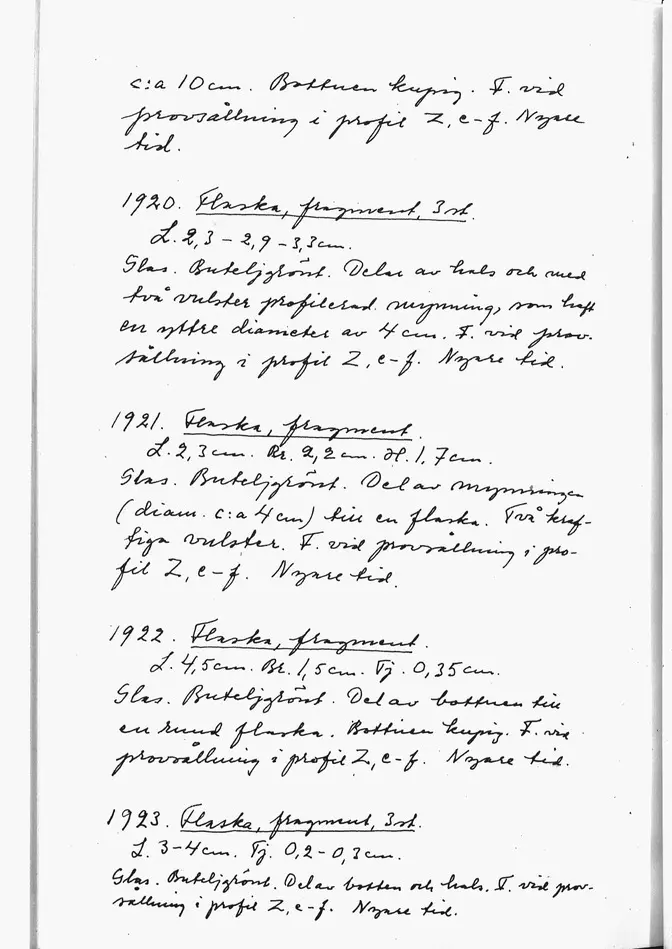 c:a 10 cm. Bottnen kupig. F. vid
provsållning i profil Z, e-f. Nyare
tid.
1920. Flaska, fragment, 3 st.
L. 2,3 - 2,9 - 3,3 cm.
Glas. Buteljgrönt. Delar av hals och med
två vulster profilerad mynning, som haft
en yttre diameter av 4 cm. F. vid prov-
sållning i profil Z, e-f. Nyare tid.
1921. Flaska, fragment.
L. 2,3 cm. Br. 2,2 cm. H. 1,7 cm.
Glas. Buteljgrönt. Del av mynningen
(diam. c:a 4 cm) till en flaska. Två kraf-
tiga vulster. F. vid provsållning i pro-
fil Z, e-f. Nyare tid.
1922. Flaska, fragment.
L. 4,5 cm. Br. 1,5 cm. Tj. 0,35 cm.
Glas. Buteljgrönt. Del av bottnen till
en rund flaska. Bottnen kupig. F. vid
provsållning i profil Z, e-f. Nyare tid.
1923. Flaska, fragment, 3 st.
L. 3-4 cm. Tj. 0,2-0,3 cm.
Glas. Buteljgrönt. Del av botten och hals. F. vid prov-
sållning i profil Z, e-f. Nyare tid.